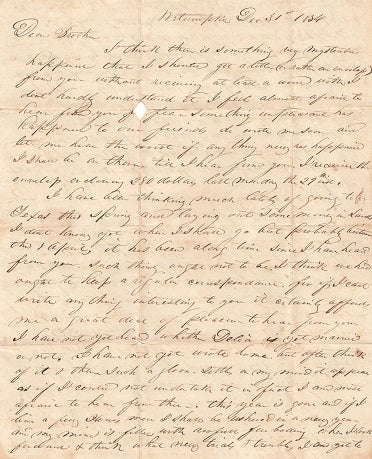 Wetumpka Dec 31st 1834
Dear Brother
I think there is something very mysterious
happened that I should get a letter (or rather an envelope)
from you without receiving at least a word with it
I dont hardly understand it I feel almost afraid to
hear from you for fear something unpleasant has
happened to our friends do write me soon and
let me hear the worst if any thing new has happened
I shall be on thorns till I hear from you. I received the
envelope enclosing 250 dollars last Monday the 29th inst.
I have been thinking much lately of going to
Texas this Spring and laying out some money in lands
I dont know yet when I shall go but probably between
this & April, it has been a long time since I have heard
from you. Such things ought not to be, I think we
ought to keep a regular correspondence. for if I cant
write any thing interesting to you it certainly affords
me a great deal of pleasure to hear from you
I have not yet heard whether Delia is yet married
or not. I have not yet wrote home but after think
of it & then such a gloom settles on my mind it appears
as if I could not undertake it in fact I am most
afraid to hear from them. this year is gone and if I
live a few Hours more I shall be ushered in a new year
and my mind is filled with forboding when I look
forward & think what new trials & trouble I am yet to